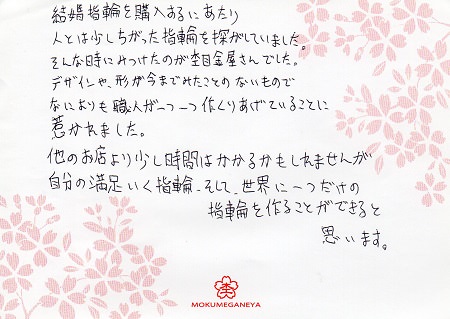 結婚指輪を購入するにあたり
人とは少しちがった指輪を探がしていました。
そんな時にみつけたのが杢目金屋さんでした。
デザインや、形が今までみたことのないもので
なによりも職人が一つ一つ作くりあげていることに
惹かれました。
他のお店より少し時間はかかるかもしれませんが
自分の満足いく指輪、そして、世界に一つだけの
指輪を作ることができると
思います。
杢
MOKUMEGANEYA